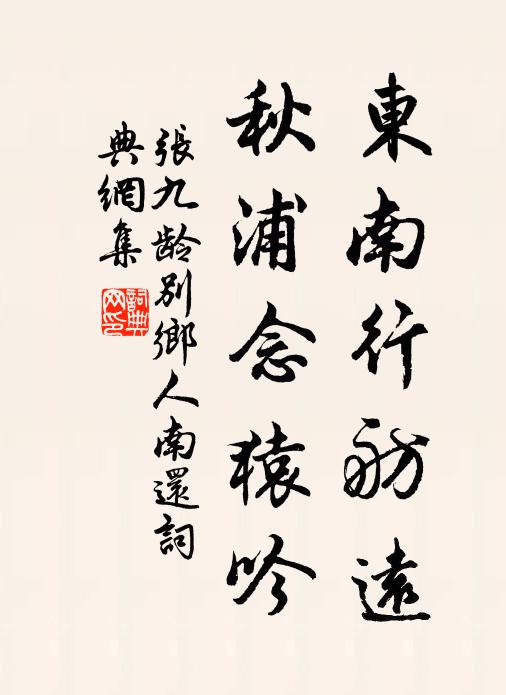 東南行舫遠
秋浦念猿吟
張九齡別鄉人南還詞
典網集
詞典網印